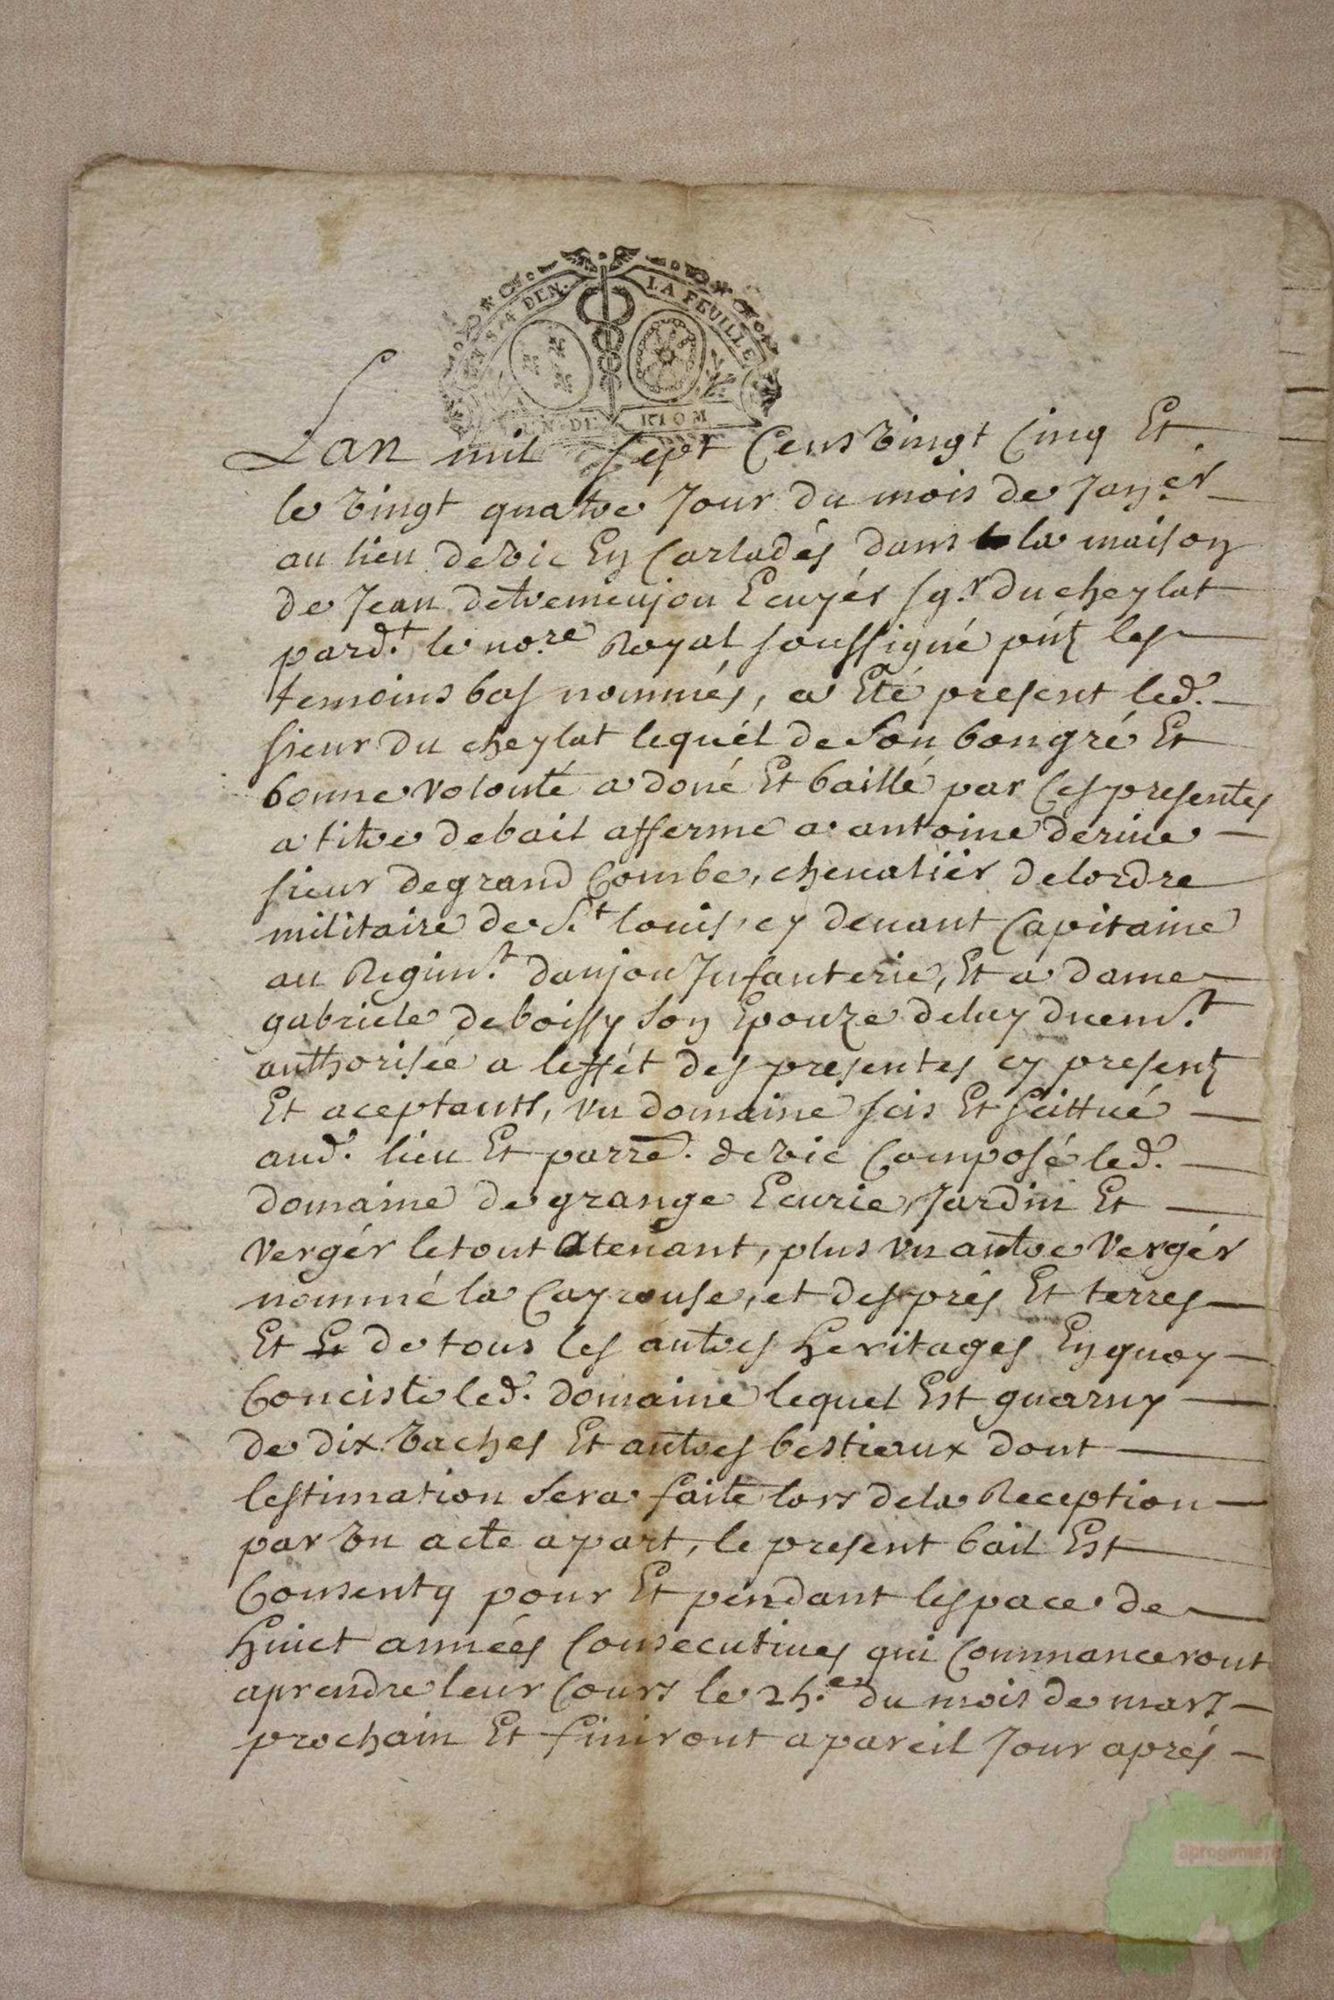 EN S 4 DEN. LA FEUILLE
EN. DE RIOM
Lan mil sept Cens vingt Cinq Et
le vingt quatre Jour du mois de Janv.er
au lieu de vic En Carladés dans la maison
de Jean detremeujou Ecuyér sgr. du cheylat
pard.t le no.re Royal soussigné pñt les
temoins bas nommés, a Eté present led.
sieur du cheylat lequél de son bon gré Et
bonne volonté a doné Et baillé par Ces presentes
a titre de bail afferme a antoine derive
sieur de grand Combe, chevaliér delordre
militaire de S.t louis, cy devant Capitaine
au Regim.t danjou Infanterie, Et a dame
gabriele deboissy son Epouze deluy duem.t
authorisée a leffét des presentes cy present
Et aceptants, vn domaine scis Et scittué
aud. lieu Et parr̃e. de vic Composé led.
domaine de grange Ecurie, Jardin Et
vergér le tout Atenant, plus vn autre vergér
nommé la Cayrouse, et des prés Et terres
Et de tous les autres heritages En quoy
Conciste led. domaine lequel Est guarny
de dix vaches Et autres bestieaux dont
lestimation sera faite lors dela Reception
par vn acte apart, le present bail Est
Consenty pour Et pendant lespace de
huict années Consecutives qui Commanceront
aprendre leur Cours le 24.e du mois de mars
prochain Et finiront a pareil Jour aprés
aprogemere